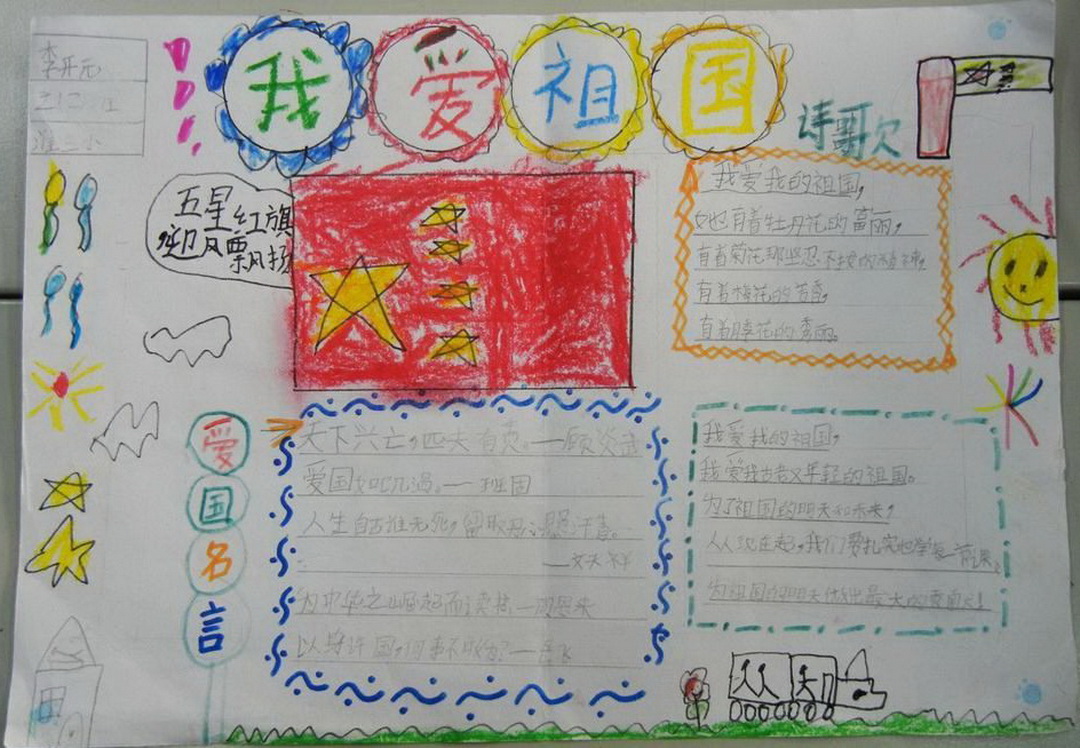 李开元
我爱祖国
诗歌
五星红旗
迎风飘扬
我爱我的祖国,
她也有着牡丹花的富丽,
有着菊花那坚忍不拔的精神,
有着梅花的芳香,
有着桂花的秀丽。
爱国名言
天下兴亡,匹夫有责。—顾炎武
爱国如饥渴。—班固
人生自古谁无死,留取丹心照汗青。
—文天祥
为中华之崛起而读书—周恩来
以身许国,何事不敢为?—岳飞
我爱我的祖国,
我爱我古老又年轻的祖国。
为了祖国的明天和未来,
从现在起,我们要扎实地学
为祖国的明天做出最大的贡献!